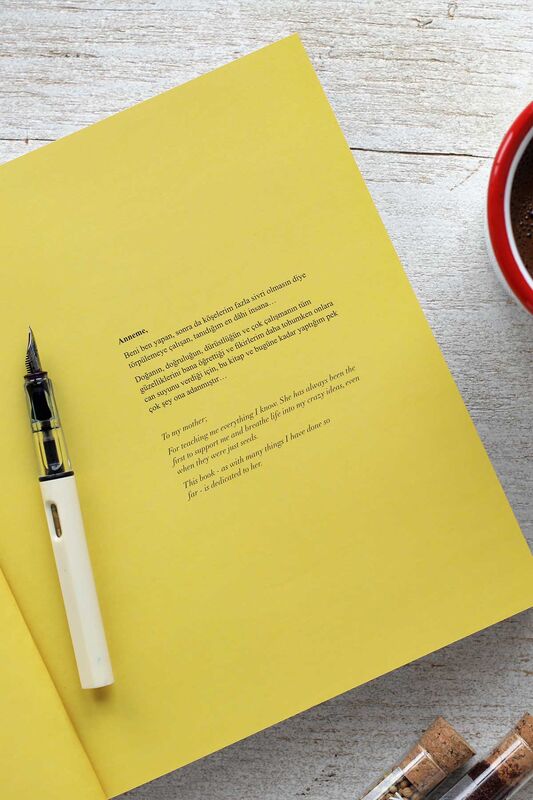 Anneme,
Beni ben yapan, sonra da köşelerim fazla sivri olmasın diye
törpülemeye çalışan, tanıdığım en dâhi insana…
Doğanın, doğruluğun, dürüstlüğün ve çok çalışmanın tüm
güzelliklerini bana öğrettiği ve fikirlerim daha tohumken onlara
can suyunu verdiği için, bu kitap ve bugüne kadar yaptığım pek
çok şey ona adanmıştır…
To my mother;
For teaching me everything I know. She has always been the
first to support me and breathe life into my crazy ideas, even
when they were just seeds.
This book - as with many things I have done so
far - is dedicated to her.